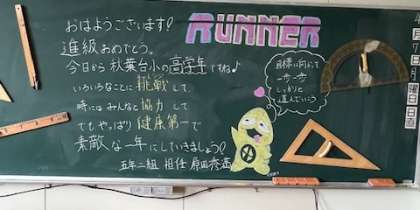 RUNNER
おはようございます!
進級おめでとう。
今日から秋葉台小の高学年ですね♪
いろいろなことに挑戦して
時にはみんなと協力して
でもやっぱり健康第一で
素敵な一年にしていきましょう!
五年二組 担任 原田
目標に向かって
一歩一歩
しっかりと
進んでいこう
月
日
曜日
日直